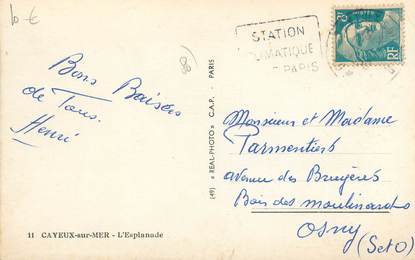 10 €
80
STATION
CLIMATIQUE
PARIS
RF
Bons Baisers
de Tous.
Henri
(49) « REAL-PHOTO » C.A.P. - PARIS
Monsieur et Madame
Parmentiers
avenue des Bruyères
Bois des moulinards
Osny
(S et O)
11 CAYEUX-sur-MER - L'Esplanade